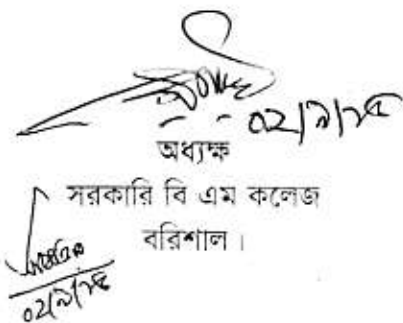 ০২/৯/২৫
অধ্যক্ষ
সরকারি বি এম কলেজ
বরিশাল।
০২/৯/২৫